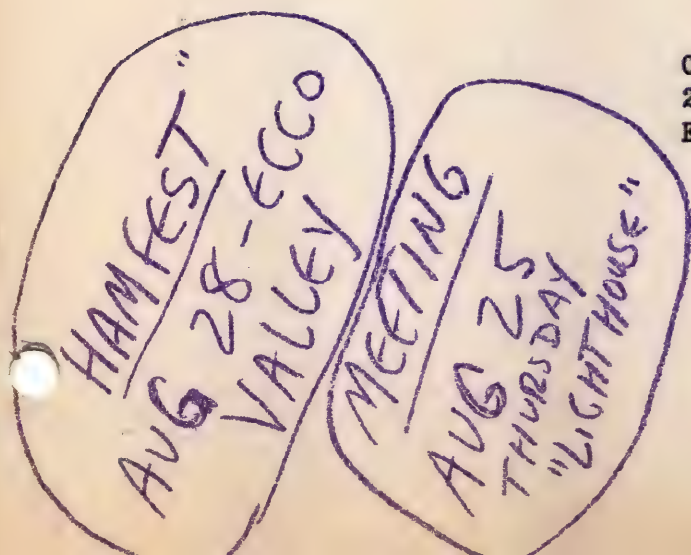 "HAMFEST"
AUG 28 - ECCO
VALLEY
MEETING
AUG 25
THURSDAY
"LIGHTHOUSE"
2